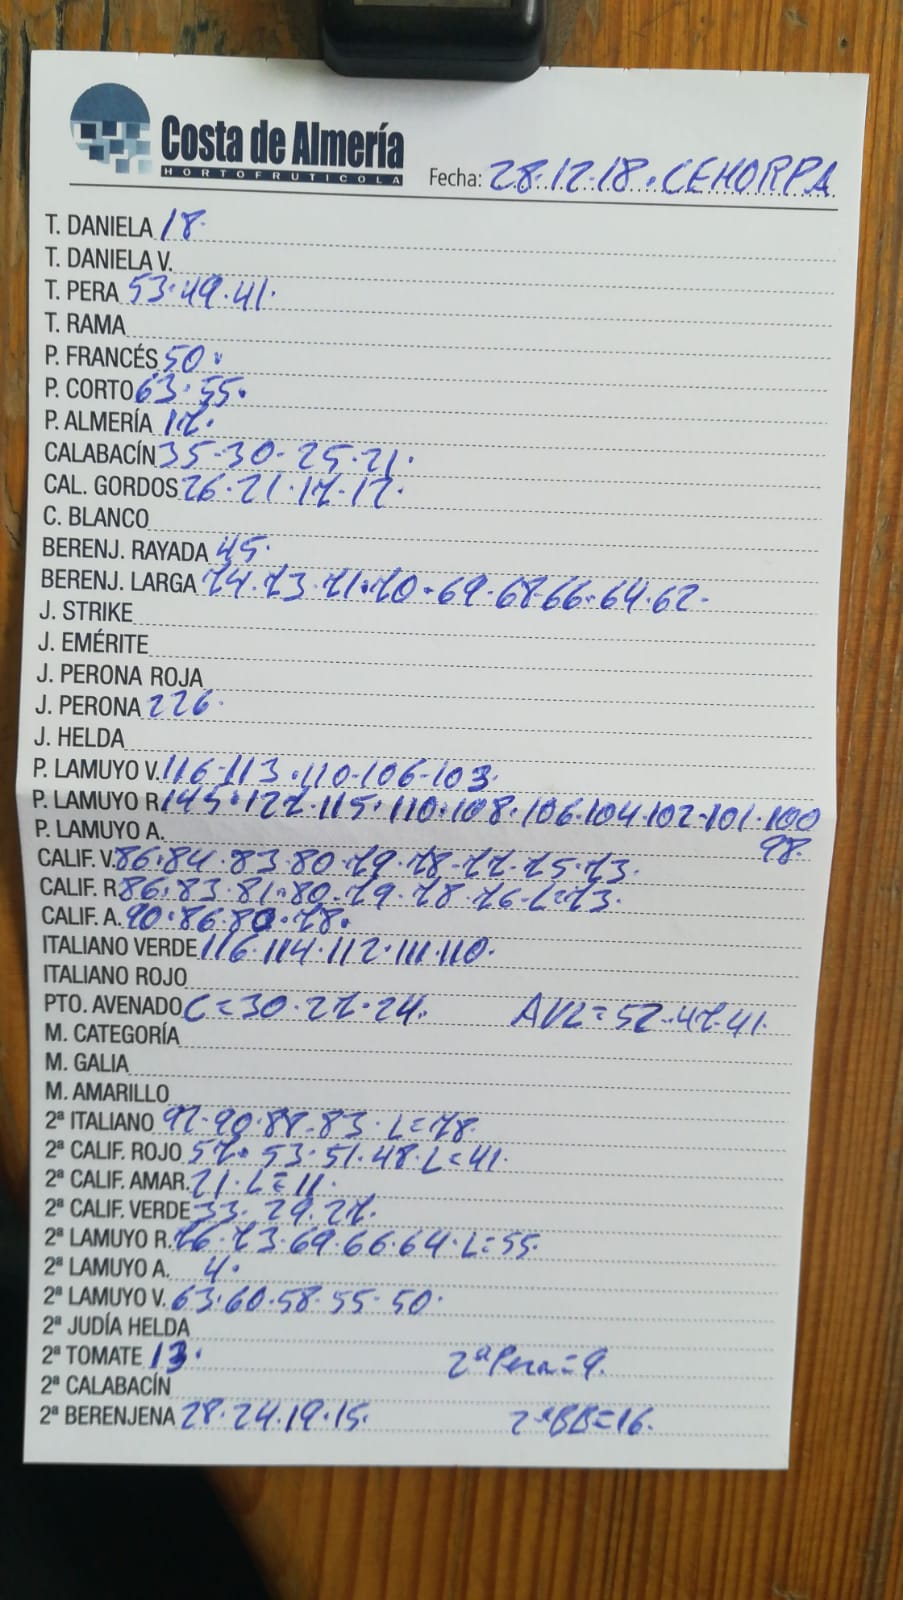 Costa de Almería
HORTOFRUTICOLA
Fecha: 28.12.18. CEHORPA
T. DANIELA 18.
T. DANIELA V.
T. PERA 53.49.41.
T. RAMA
P. FRANCÉS 50.
P. CORTO 63.55.
P. ALMERÍA 17.
CALABACÍN 35-30-25.21.
CAL. GORDOS 26.21.17-12.
C. BLANCO
BERENJ. RAYADA 45.
BERENJ. LARGA 74.73.71.70.69.68-66-64.62-
J. STRIKE
J. EMÉRITE
J. PERONA ROJA
J. PERONA 226.
J. HELDA
P. LAMUYO V. 116-113.110-106-103.
P. LAMUYO R. 145.127.115.110.108.106.104.102-101.100
98.
P. LAMUYO A.
CALIF. V. 86.84.83.80.79.78-77-75.73.
CALIF. R. 86.83.81.80.79.78.76-L=73.
CALIF. A. 90.86.80.78.
ITALIANO VERDE 116.114.112.111.110.
ITALIANO ROJO
PTO. AVENADO C=30.27.24. AVL=52.47-41.
M. CATEGORÍA
M. GALIA
M. AMARILLO
2ª ITALIANO 97.90.88.83.L=78.
2ª CALIF. ROJO 57.53.51.48.L=41.
2ª CALIF. AMAR. 21.L=11.
2ª CALIF. VERDE 33.29.27.
2ª LAMUYO R. 76.73.69.66.64.L=55.
2ª LAMUYO A. 4.
2ª LAMUYO V. 63.60.58.55.50.
2ª JUDÍA HELDA
2ª TOMATE 13. 2ª Pera=9.
2ª CALABACÍN
2ª BERENJENA 28.24.19.15. 2ªBB=16.